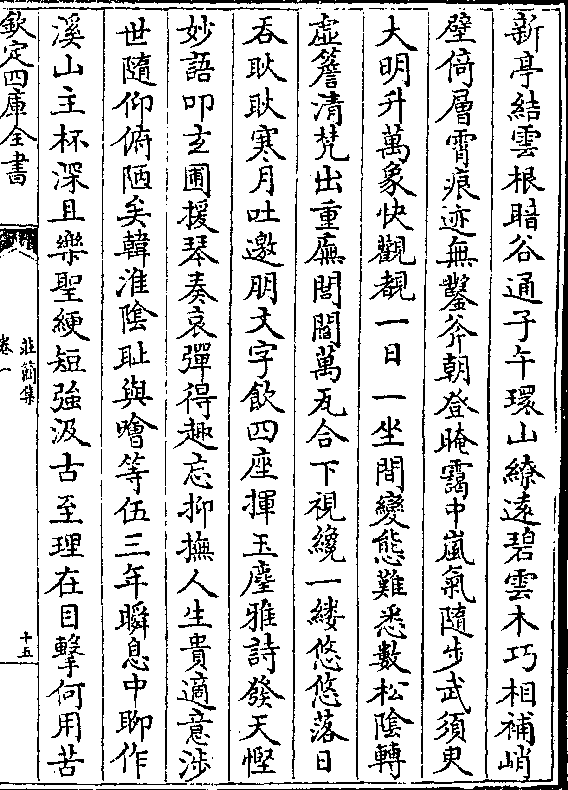 新亭結雲根暗谷通子午環山繚遠碧雲木巧相補峭
壁倚層霄痕迹無鑿斧朝登晻靄中嵐氣隨步武須臾
大明升萬象快觀覩一日一坐間變態難悉數松陰轉
虚簷清梵出重廡閭閻萬瓦合下視纔一縷悠悠落日
吞耿耿寒月吐邀朋大字飲四座揮玉麈雅詩發天慳
妙語叩玄圃援琴奏哀彈得趣忘抑撫人生貴適意涉
世隨仰俯陋矣韓淮陰耻與噲等伍三年瞬息中聊作
溪山主杯深且樂聖綆短強汲古至理在目擊何用苦
欽定四庫全書
莊簡集
卷一
十五